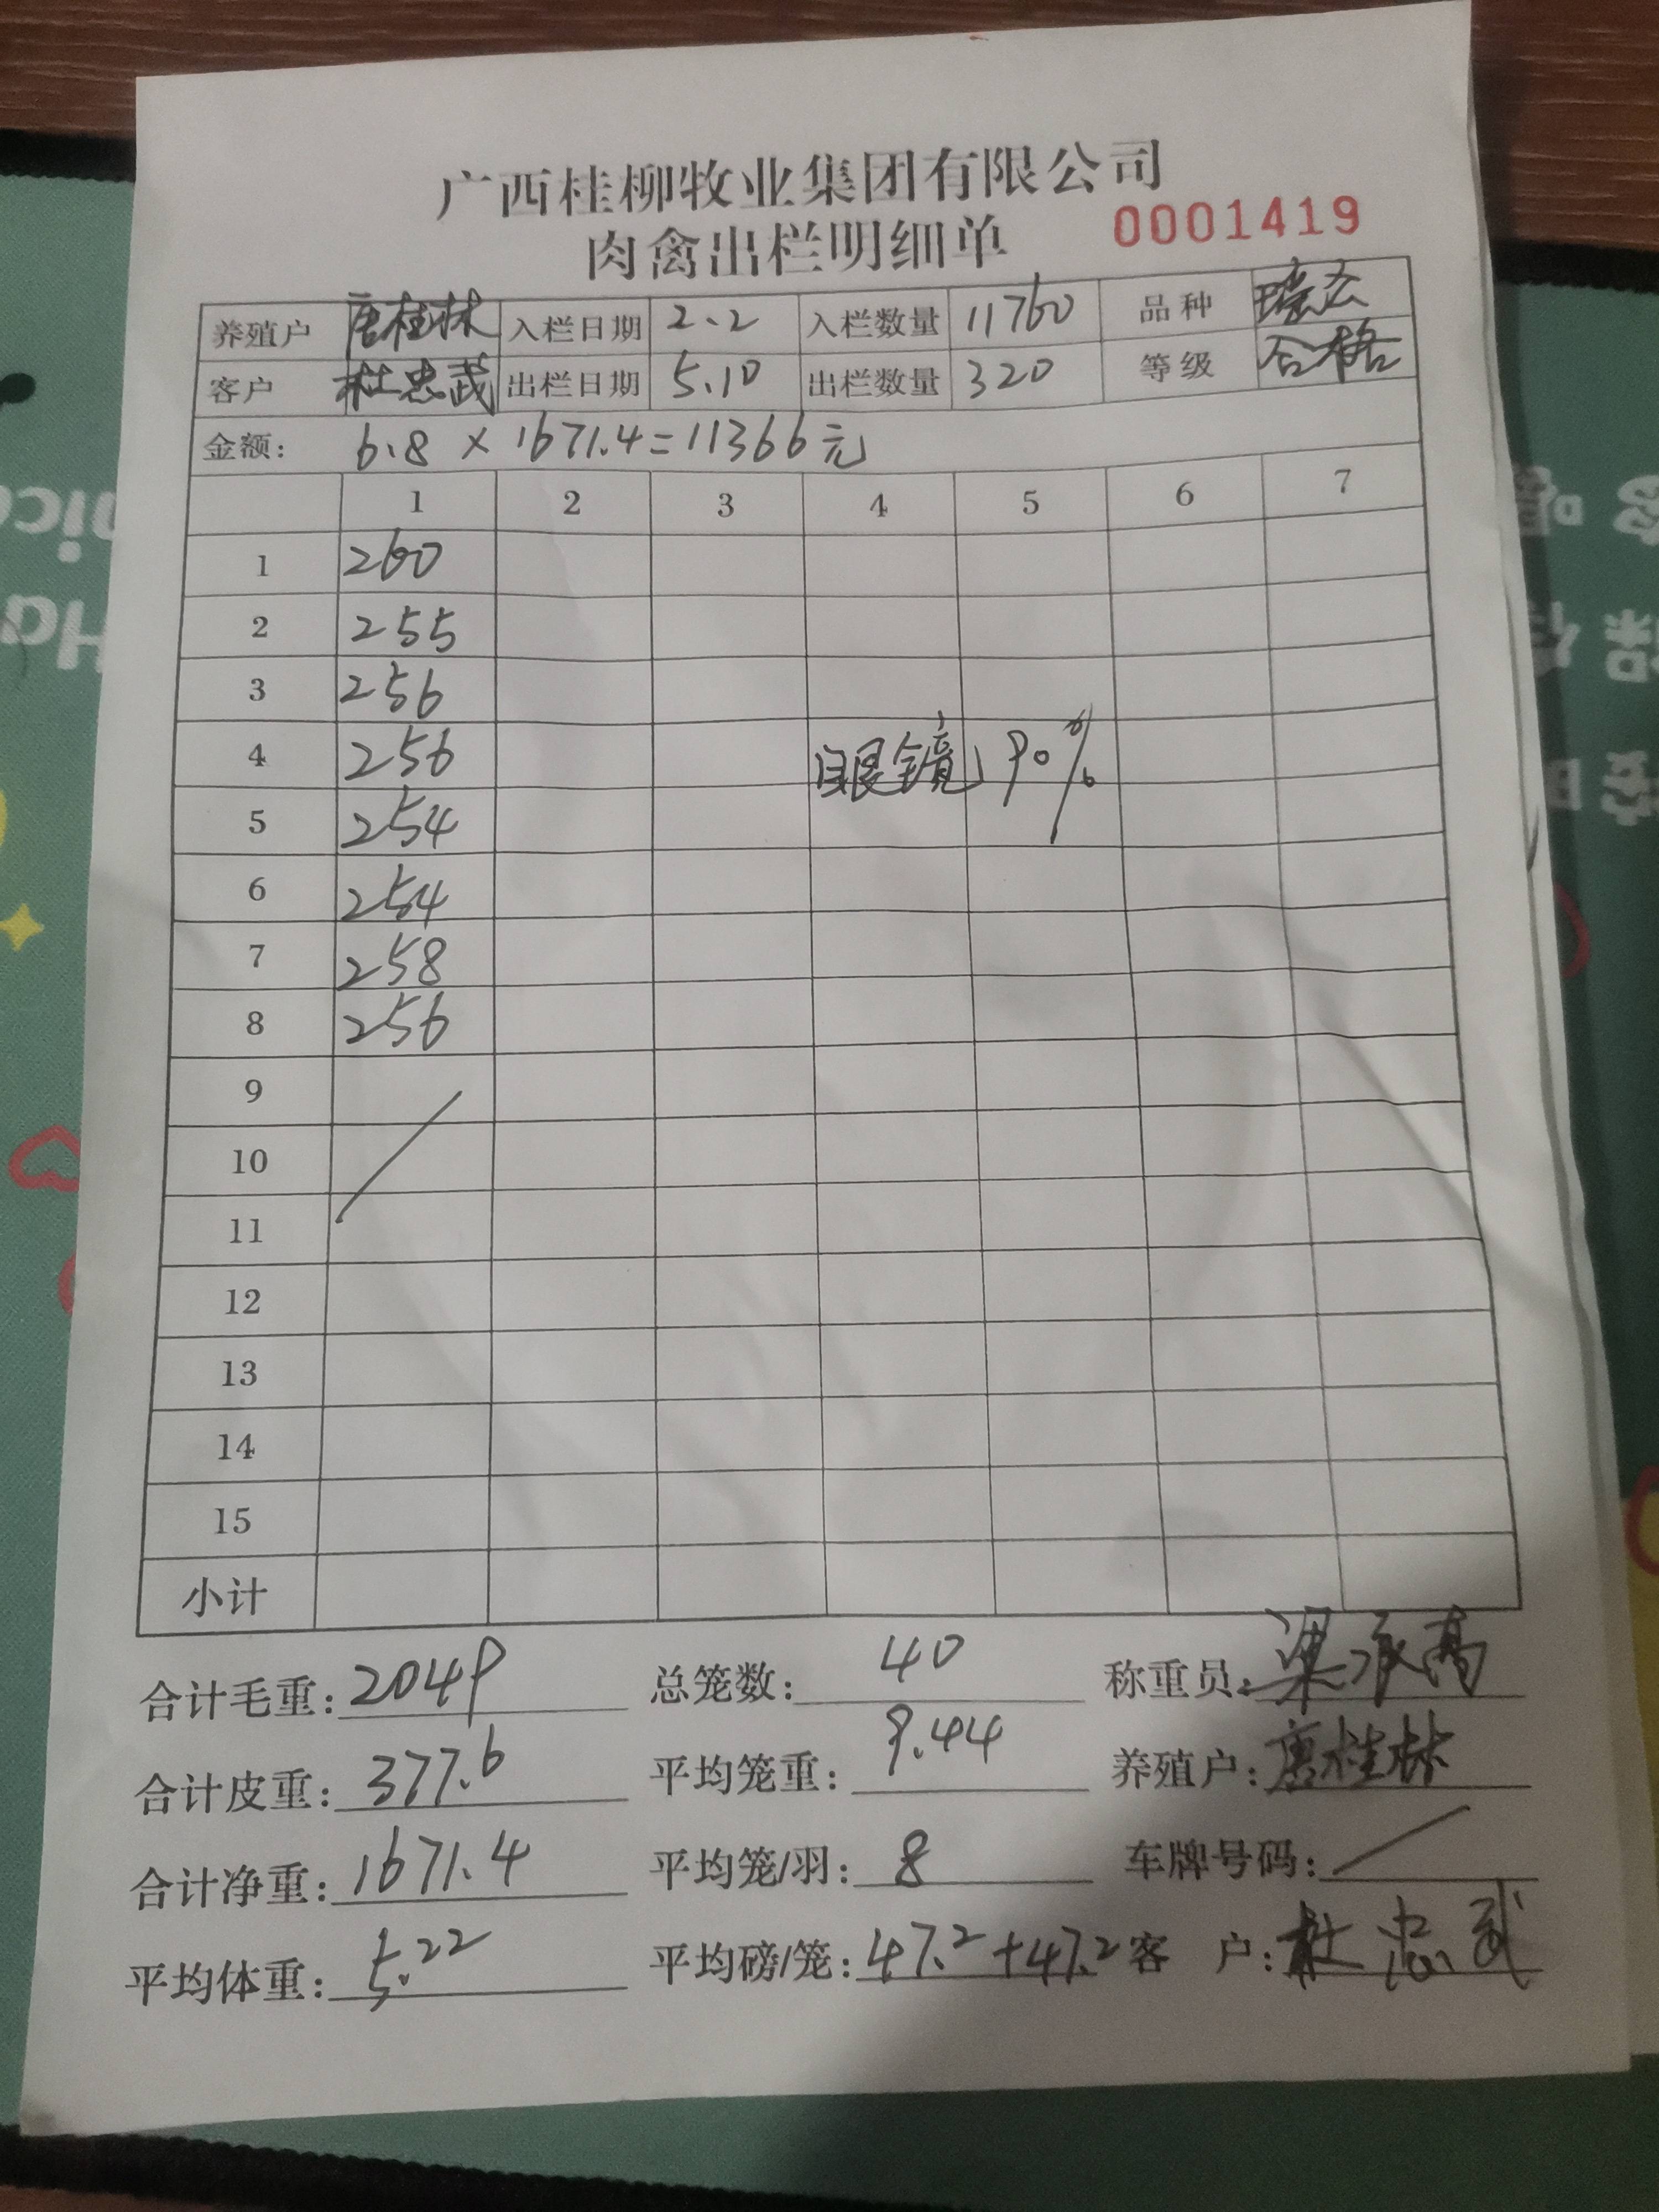 广西桂柳牧业集团有限公司
肉禽出栏明细单 0001419
养殖户 唐桂林 入栏日期 2.2 入栏数量 11760 品种
客户 杜忠武 出栏日期 5.10 出栏数量 320 等级 合格
金额: 6.8 × 1671.4=11366元
1 2 3 4 5 6 7
1 260
2 255
3 256
4 256 眼镜 90%
5 254
6 254
7 258
8 256
9
10
11
12
13
14
15
小计
合计毛重: 2049 总笼数: 40 称重员: 梁承高
合计皮重: 377.6 平均笼重: 9.44 养殖户: 唐桂林
合计净重: 1671.4 平均笼/羽: 8 车牌号码: /
平均体重: 5.22 平均磅/笼: 47.2+47.2 客 户: 杜忠武